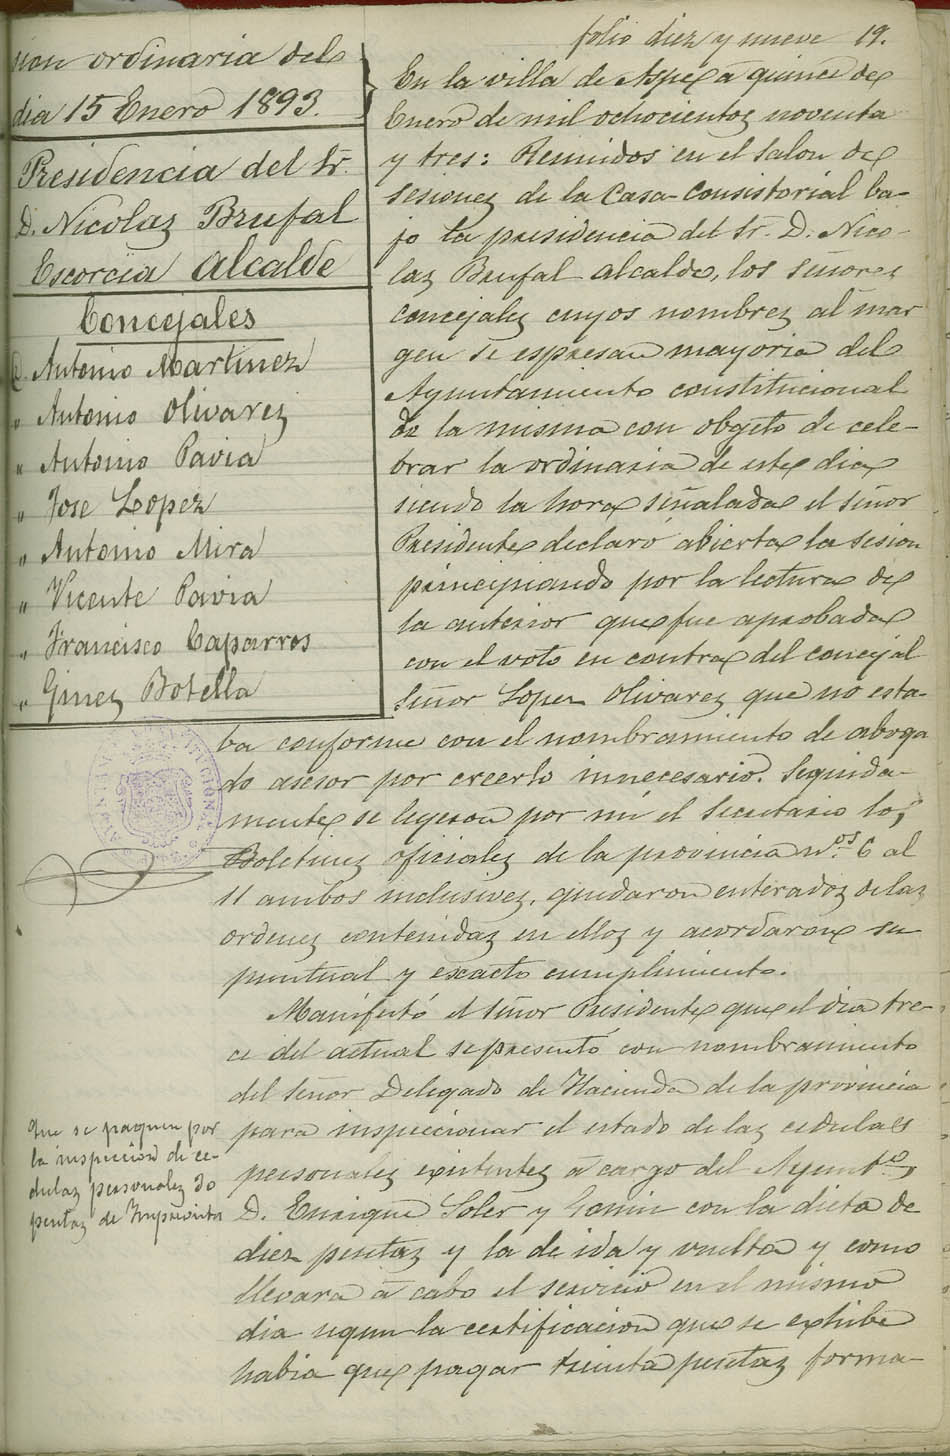 folio diez y nueve 19.
sion ordinaria del
dia 15 Enero 1893.
Presidencia del Sr.
D. Nicolas Brufal
Escorcia Alcalde
Concejales
D. Antonio Martinez
" Antonio Olivares
" Antonio Pavia
" Jose Lopez
" Antonio Mira
" Vicente Pavia
" Francisco Caparros
" Gines Botella
En la villa de Aspe a quince de
Enero de mil ochocientos noventa
y tres: Reunidos en el salon de
sesiones de la Casa-Consistorial ba-
jo la presidencia del Sr. D. Nico-
las Brufal Alcalde, los señores
concejales cuyos nombres al mar
gen se espresan mayoria del
Ayuntamiento constitucional
de la misma con objeto de cele-
brar la ordinaria de este dia
siendo la hora señalada el señor
Presidente declaró abierta la sesion
principiando por la lectura de
la anterior que fue aprobada
con el voto en contra del concejal
señor Lopez Olivares que no esta-
ba conforme con el nombramiento de aboga
do asesor por creerlo innecesario. Seguida-
mente se leyeron por mi el Secretario los
Boletines oficiales de la provincia nos. 6 al
11 ambos inclusives, quedaron enterados de las
ordenes contenidas en ellos y acordaron su
puntual y exacto cumplimiento.
Manifestó el señor Presidente que el dia tre-
ce del actual se presentó con nombramiento
del señor Delegado de Hacienda de la provincia
para inspeccionar el estado de las cedulas
personales existentes á cargo del Ayunto.,
D. Enrique Soler y con la dieta de
diez pesetas y la de ida y vuelta y como
llevara á cabo el servicio en el mismo
dia segun la certificacion que se exhibe
habia que pagar treinta pesetas forma-
Que se paguen por
la inspeccion de ce-
dulas personales 30
pesetas de Imprevistos